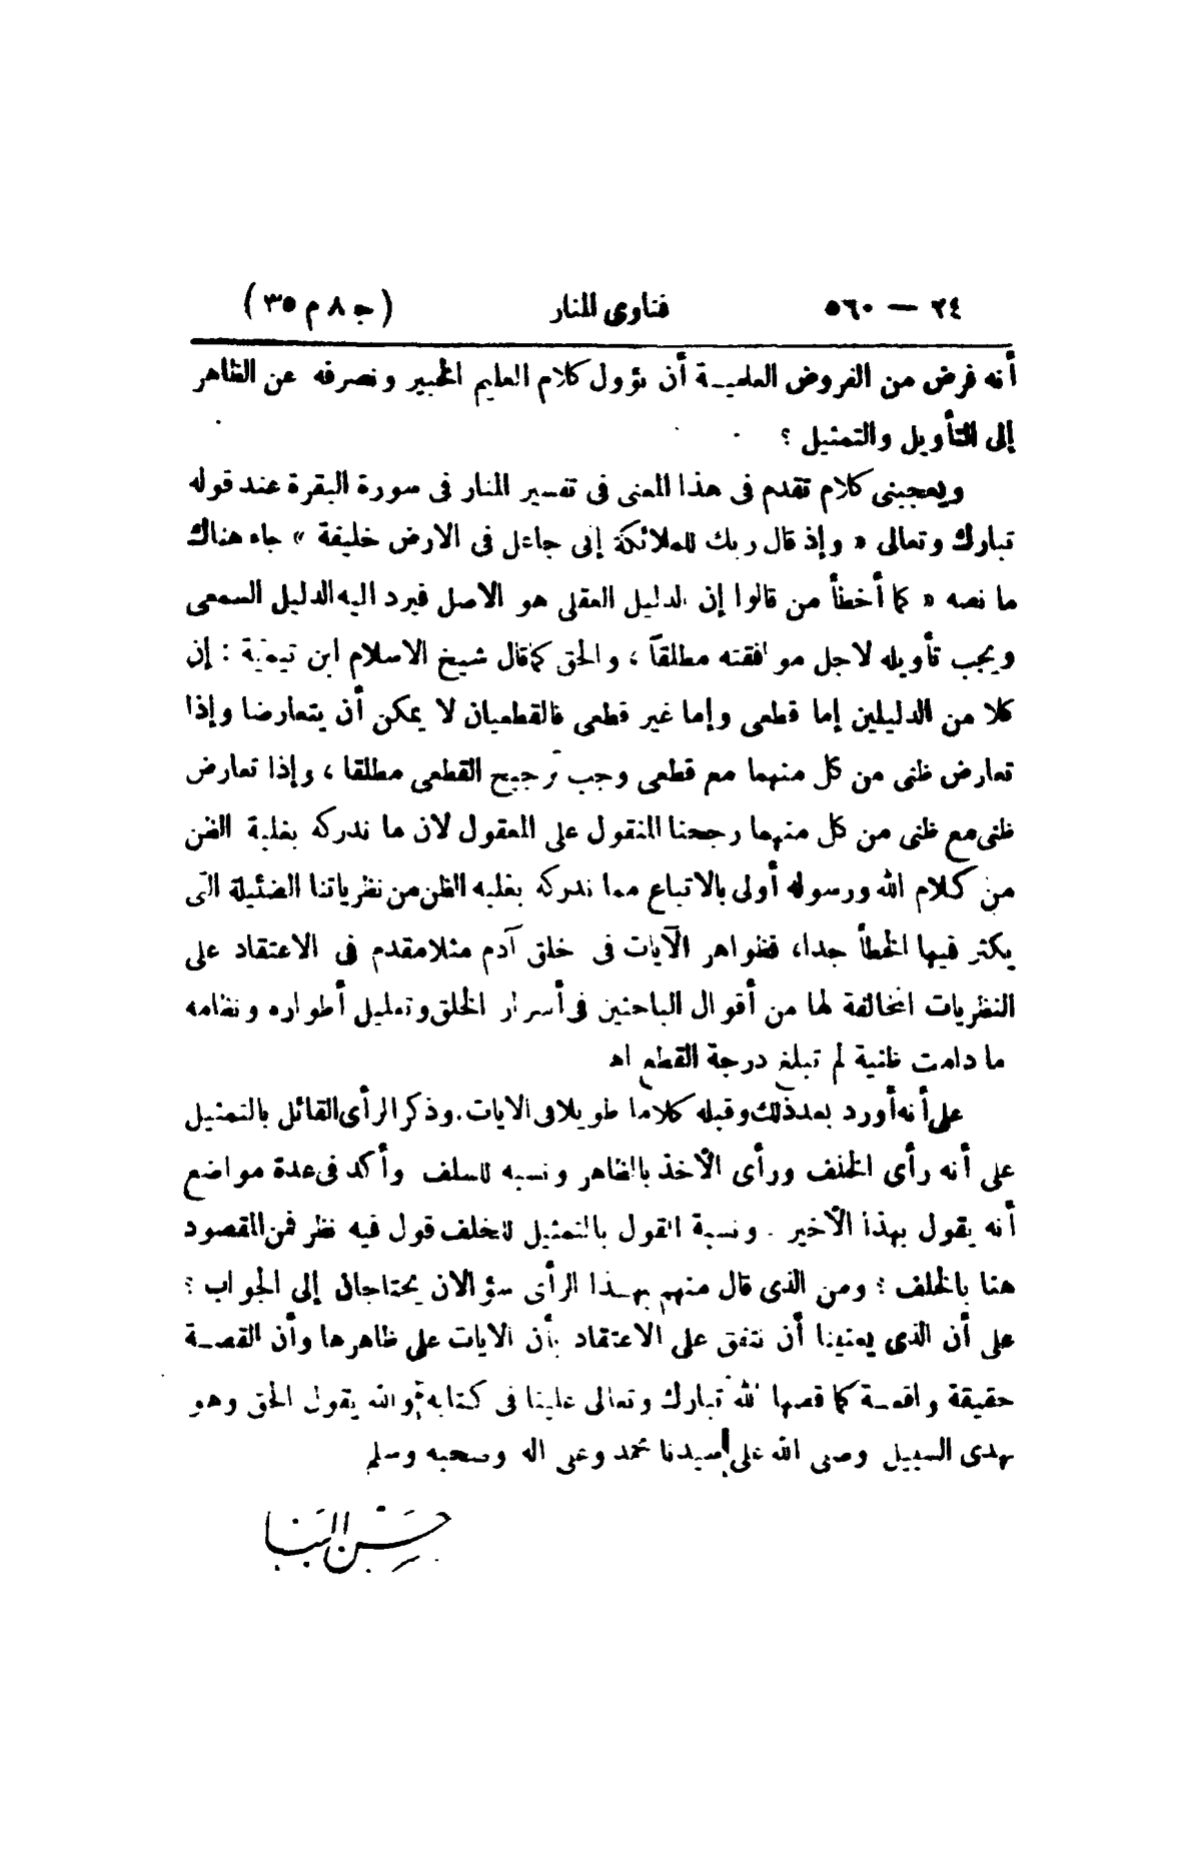 ٢٤ — ٥٦٠ فتاوى المنار (ج ٨ م ٣٥)
أنه فرض من الفروض العلميـة أن نؤول كلام العليم الخبير ونصرفه عن الظاهر
إلى التأويل والتمثيل ؟
ويعجبني كلام تقدم فى هذا المعنى فى تفسير المنار فى سورة البقرة عند قوله
تبارك وتعالى « وإذ قال ربك للملائكة إنى جاعل فى الارض خليفة » جاء هناك
ما نصه « كما أخطأ من قالوا إن الدليل العقلى هو الاصل فيرد اليه الدليل السمعى
ويجب تأويله لاجل موافقته مطلقاً ، والحق كما قال شيخ الاسلام ابن تيمية : إن
كلا من الدليلين إما قطعى وإما غير قطعى فالقطعيان لا يمكن أن يتعارضا وإذا
تعارض ظنى من كل منهما مع قطعى وجب ترجيح القطعى مطلقا ، وإذا تعارض
ظنى مع ظنى من كل منهما رجحنا المنقول على المعقول لان ما ندركه بغلبة الظن
من كلام الله ورسوله أولى بالاتباع مما ندركه بغلبه الظن من نظرياتنا الضئيلة التى
يكثر فيها الخطأ جدا، فظواهر الآيات فى خلق آدم مثلا مقدم فى الاعتقاد على
النظريات المخالفة لها من أقوال الباحثين فى أسرار الخلق وتعليل أطواره ونظامه
ما دامت ظنية لم تبلغ درجة القطع اه
على أنه أورد بعد ذلك وقبله كلاما طويلا فى الايات. وذكر الرأى القائل بالتمثيل
على أنه رأى الخلف ورأى الآخذ بالظاهر ونسبه للسلف وأكد فى عدة مواضع
أنه يقول بهذا الأخير . ونسبة القول بالتمثيل للخلف قول فيه نظر فمن المقصود
هنا بالخلف ؟ ومن الذى قال منهم بهـذا الرأى سؤالان يحتاجان إلى الجواب ؟
على أن الذى يعنينا أن نتفق على الاعتقاد بأن الايات على ظاهرها وأن القصـة
حقيقة واقعـة كما قصها الله تبارك وتعالى علينا فى كتابه والله يقول الحق وهو
يهدى السبيل وصلى الله على سيدنا محمد وعلى اله وصحبه وسلم
حسن البنا